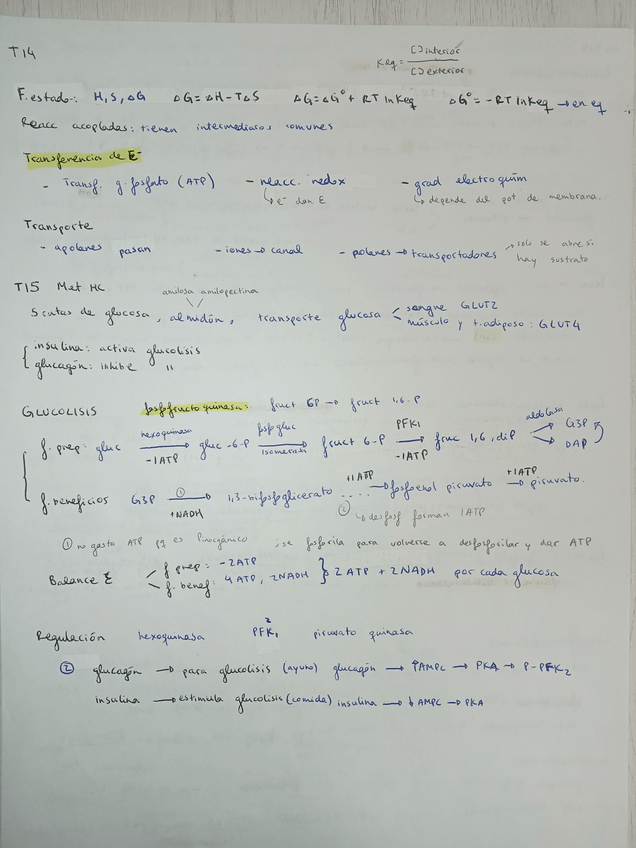 T14
Keq = [ ] interior / [ ] exterior
F. estado: H, S, ΔG ΔG = ΔH - TΔS ΔG = ΔG° + RT ln Keq ΔG° = - RT ln Keq → en eq
Reacc acopladas: tienen intermediarios comunes
Transferencia de E
- Transf. g. fosfato (ATP) - reacc. redox - grad electroquím
↳ e⁻ dan E ↳ depende del pot de membrana.
Transporte
- apolares pasan - iones → canal - polares → transportadores → solo se abre si
hay sustrato
T15 Met HC
amilosa amilopectina
glucosa, almidón, transporte glucosa < sangre GLUT2
músculo y t. adiposo: GLUT4
insulina: activa glucolisis
glucagón: inhibe "
GLUCOLISIS fosfofructoquinasa: fruct 6P → fruct 1,6-P
f. prep: gluc hexoquinasa → -1ATP gluc-6-P fosfogluc isomerasa → fruct 6-P PFK1 → -1ATP fruc 1,6, diP aldolasa < G3P
DAP
f. beneficios G3P ① → +NADH 1,3-bifosfoglicerato .... +1ATP → fosfoenol piruvato +1ATP → piruvato.
② ↳ desfosf forman 1ATP
① no gasta ATP pq es P inorgánico, se fosforila para volverse a desfosforilar y dar ATP
Balance E < f. prep: -2ATP
f. benef: 4 ATP, 2NADH } 2 ATP + 2 NADH por cada glucosa
Regulación hexoquinasa PFK1 2 piruvato quinasa
② glucagón → para glucolisis (ayuno) glucagón → ↑AMPC → PKA → P-PFK2
insulina → estimula glucolisis (comida) insulina → ↓ AMPC → PKA